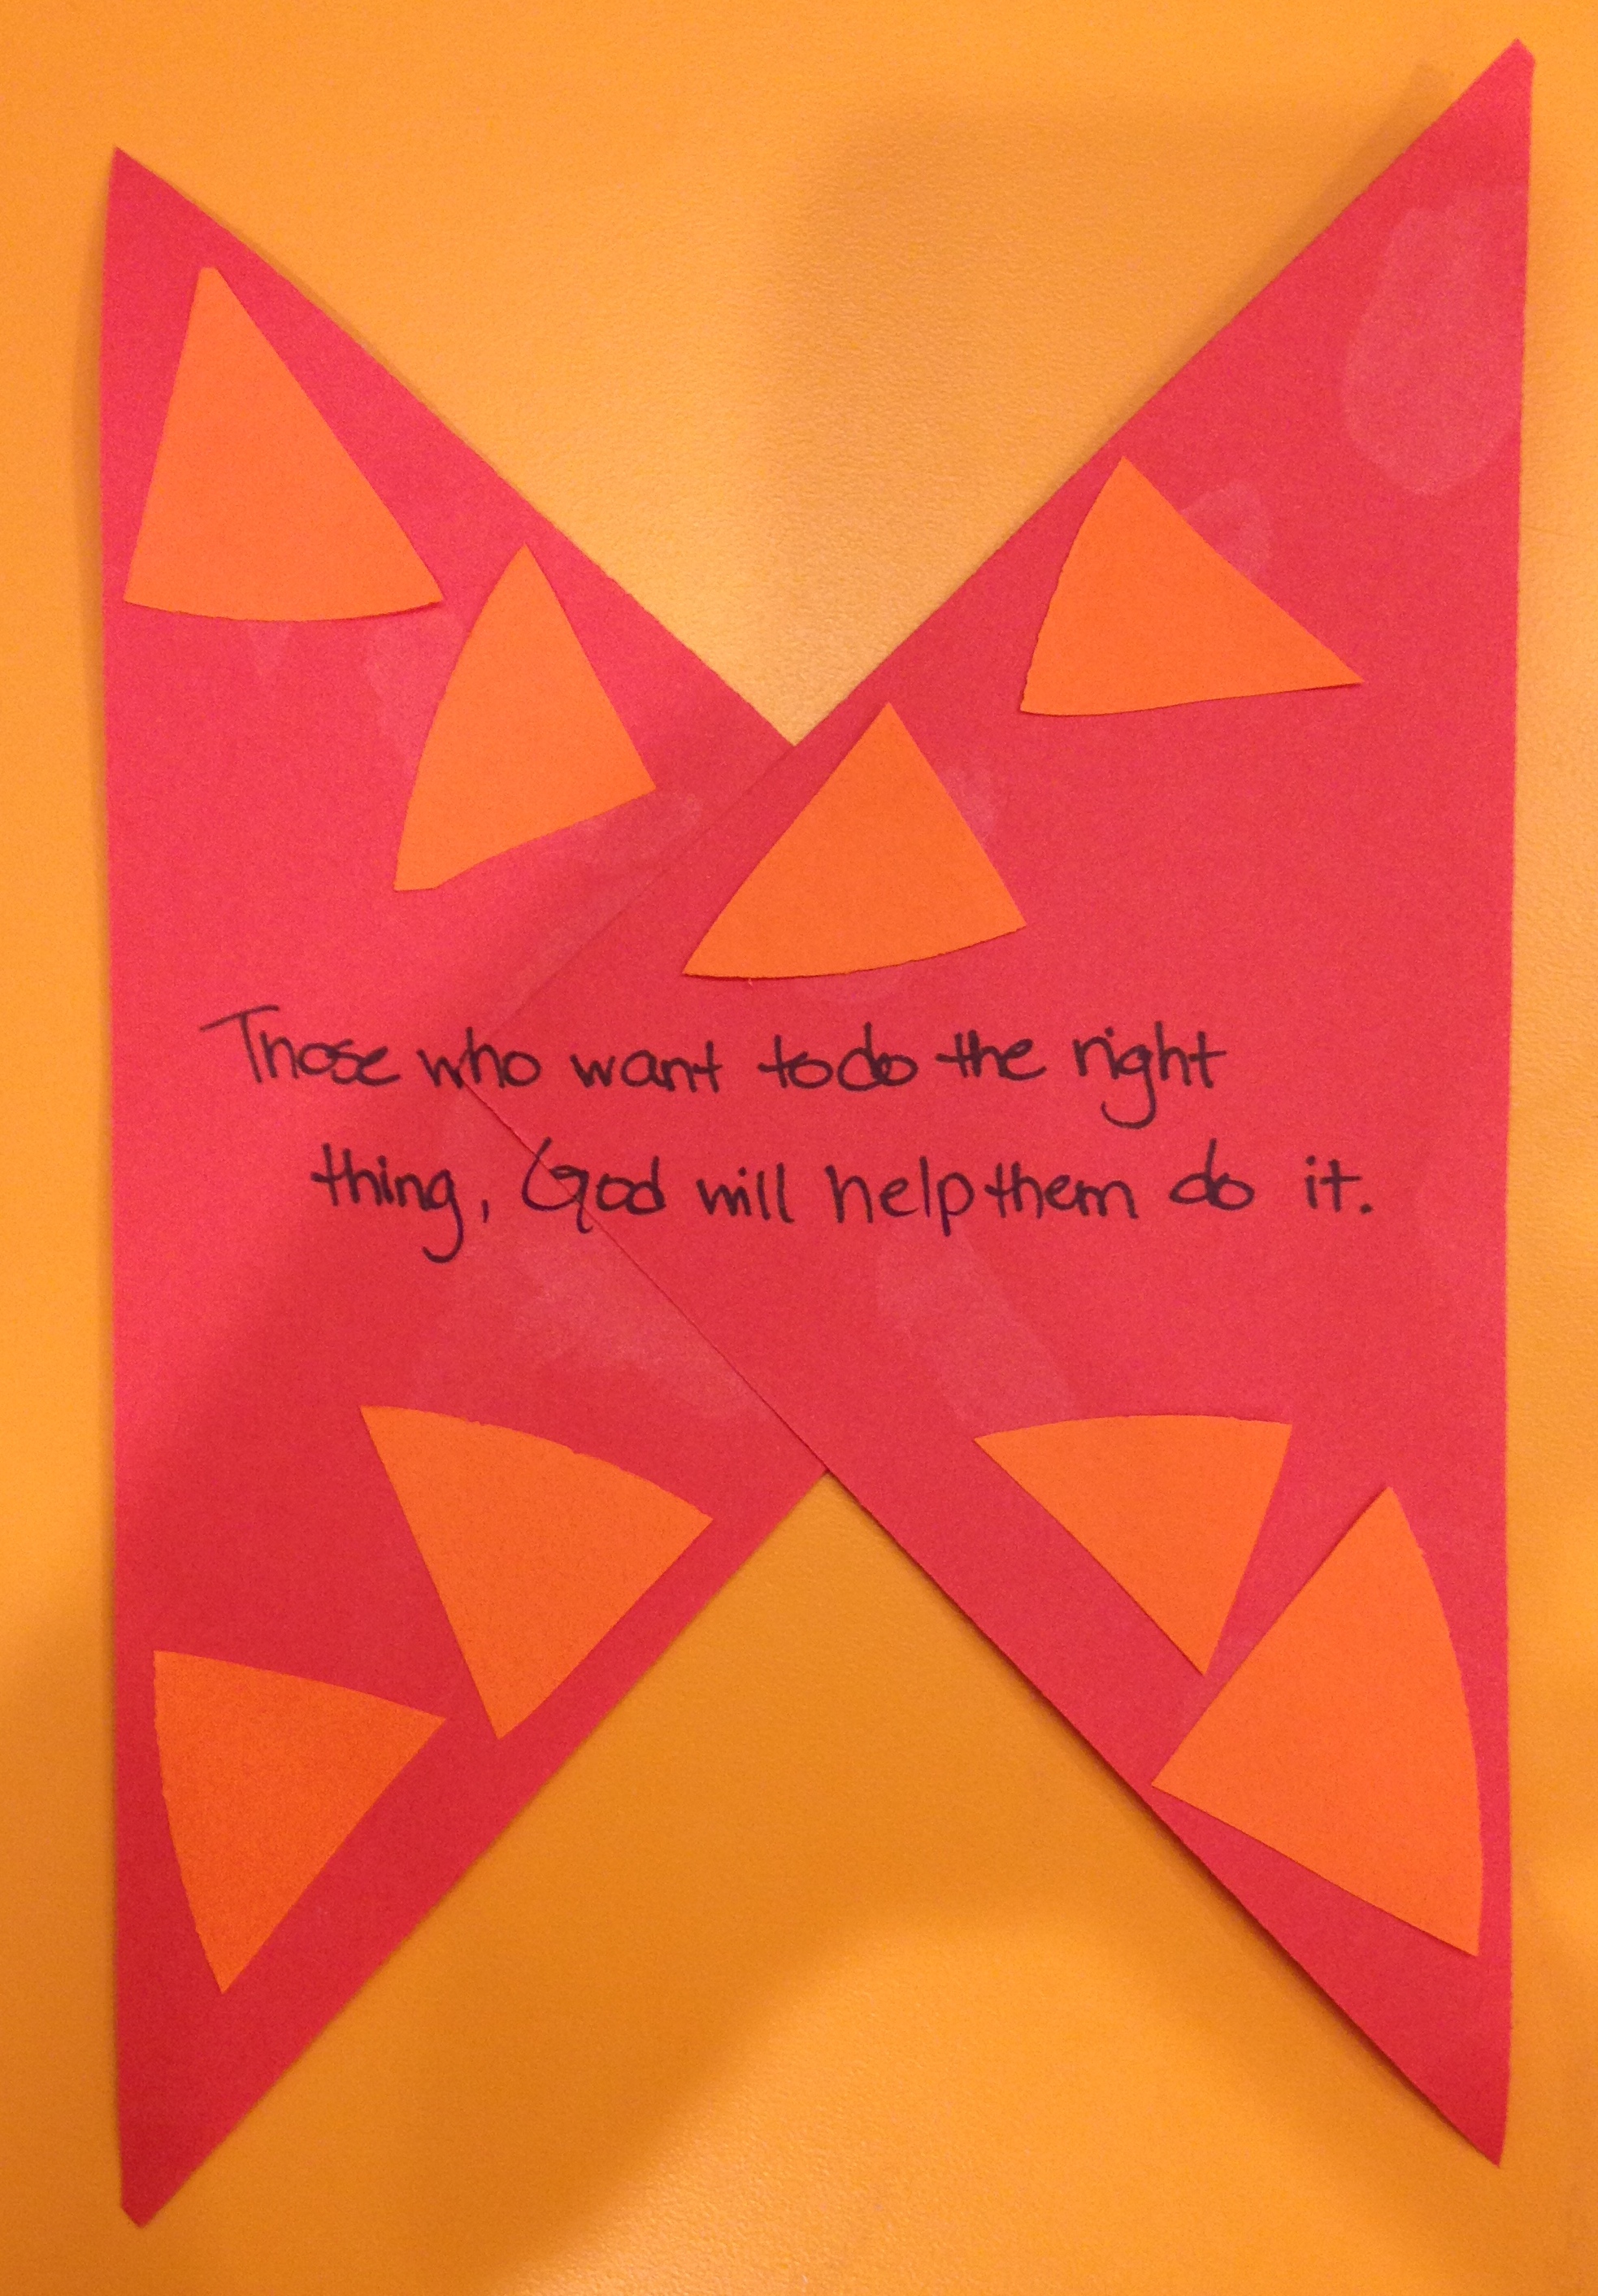 Those who want to do the right
thing, God will help them do it.